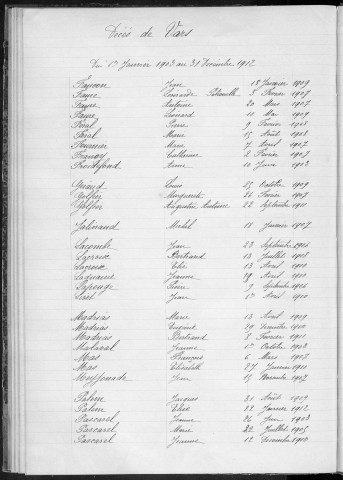 Décès de Vars
Du 1er Janvier 1903 au 31 Décembre 1912
Faucon Jean 18 Janvier 1909
Faure Léonarde 8 Février 1907
Antoine 20 Mars 1907
Faure Léonard 11 Mai 1909
Féral Pierre 9 Février 1908
Féral Marie 15 Août 1908
Fournier Marie 7 Avril 1907
Catherine 2 Février 1907
Froidefond
Géraud Louis 25 Octobre 1909
Golfier Marguerite 26 Février 1907
Golfier Augustin Antoine 22 Septembre 1911
Jalinaud Michel 18 Janvier 1907
Lacombe Jean 23 Septembre 1906
Lacroix Bertrand 13 Juillet 1908
Lacroix Elie 13 Avril 1910
Jeanne 28 Avril 1910
Lafouge Pierre 1 Septembre 1906
Jean 17 Avril 1910
Madrias Marie 13 Avril 1909
Madrias
Madrias Bertrand 8 Février 1911
Malaval Jeanne 1er Octobre 1903
Mas François 6 Mars 1907
Mas Elisabeth 27 Janvier 1911
Jean 15 Novembre 1907
Palem Jacques 31 Août 1909
Palem 22 Janvier 1912
Pascarel Jeanne 1903
Pascarel Marie 22 Juillet 1905
Pascarel Jeanne 12 Décembre 1910